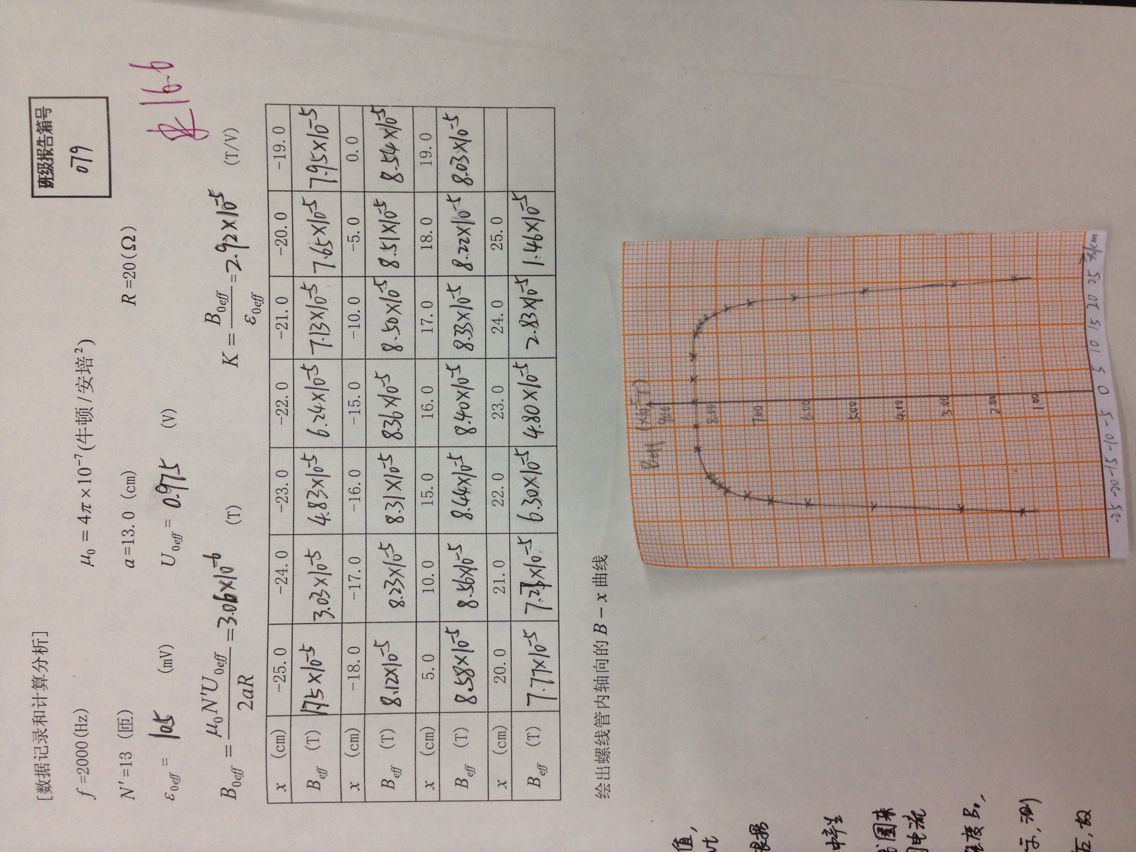 [数据记录和计算分析]
班级报告箱号
079
f =2000(Hz) μ₀ = 4π×10⁻⁷(牛顿/安培²)
N'=13 (匝) a=13.0 (cm) R=20(Ω)
ε₀eff = 105 (mV) U₀eff = 0.975 (V)
16.6
B₀eff = μ₀N'U₀eff / 2aR = 3.06×10⁻⁶ (T) K = B₀eff / ε₀eff = 2.92×10⁻⁵ (T/V)
x (cm) -25.0 -24.0 -23.0 -22.0 -21.0 -20.0 -19.0
Beff (T) 1.75×10⁻⁵ 3.03×10⁻⁵ 4.83×10⁻⁵ 6.24×10⁻⁵ 7.13×10⁻⁵ 7.65×10⁻⁵ 7.95×10⁻⁵
x (cm) -18.0 -17.0 -16.0 -15.0 -10.0 -5.0 0.0
Beff (T) 8.12×10⁻⁵ 8.23×10⁻⁵ 8.31×10⁻⁵ 8.36×10⁻⁵ 8.50×10⁻⁵ 8.51×10⁻⁵ 8.54×10⁻⁵
x (cm) 5.0 10.0 15.0 16.0 17.0 18.0 19.0
Beff (T) 8.58×10⁻⁵ 8.56×10⁻⁵ 8.44×10⁻⁵ 8.40×10⁻⁵ 8.33×10⁻⁵ 8.22×10⁻⁵ 8.03×10⁻⁵
x (cm) 20.0 21.0 22.0 23.0 24.0 25.0
Beff (T) 7.77×10⁻⁵ 6.30×10⁻⁵ 4.80×10⁻⁵ 2.83×10⁻⁵ 1.46×10⁻⁵
绘出螺线管内轴向的 B－x 曲线
Beff (×10⁻⁵T)
9.00
8.00
7.00
6.00
5.00
4.00
3.00
2.00
1.00
-25 -20 -15 -10 -5 0 5 10 15 20 25 x/cm
值,
vt
根据
中产生
圈来
电流
强度B₀,
示,测
左,故